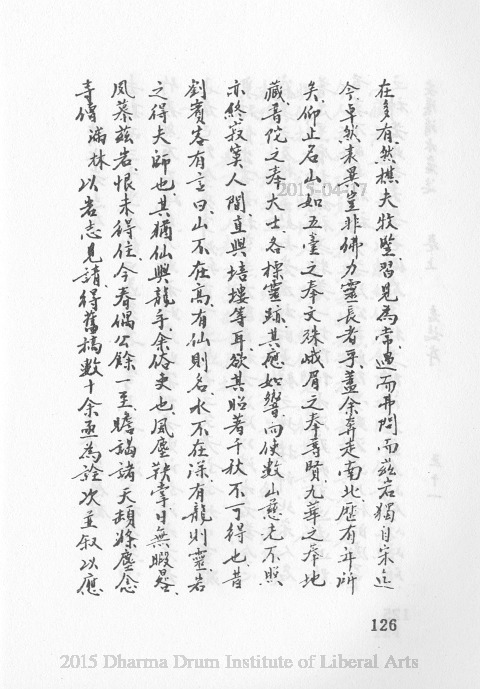 在多有然樵夫牧豎習見為常過而弗問而茲岩獨自宋迄
今卓然表異豈非佛力靈長者乎蓋余奔走南北歷有年所
矣仰止名山如五臺之奉文殊峨眉之奉普賢九華之奉地
藏普陀之奉大士各標靈跡其應如響向使數山慈光不照
亦終寂寞人間直與培塿等耳欲其昭著千秋不可得也昔
劉賓客有言曰山不在高有仙則名水不在深有龍則靈岩
之得夫師也其猶仙與龍乎余俗吏也風塵鞅掌日無暇晷
夙慕茲岩恨未得住今春偶公餘一至瞻謁諸天頓滌塵念
寺僧滿林以岩志見請得舊稿數十余亟為詮次並叙以應
126
2015-04-17
2015 Dharma Drum Institute of Liberal Arts